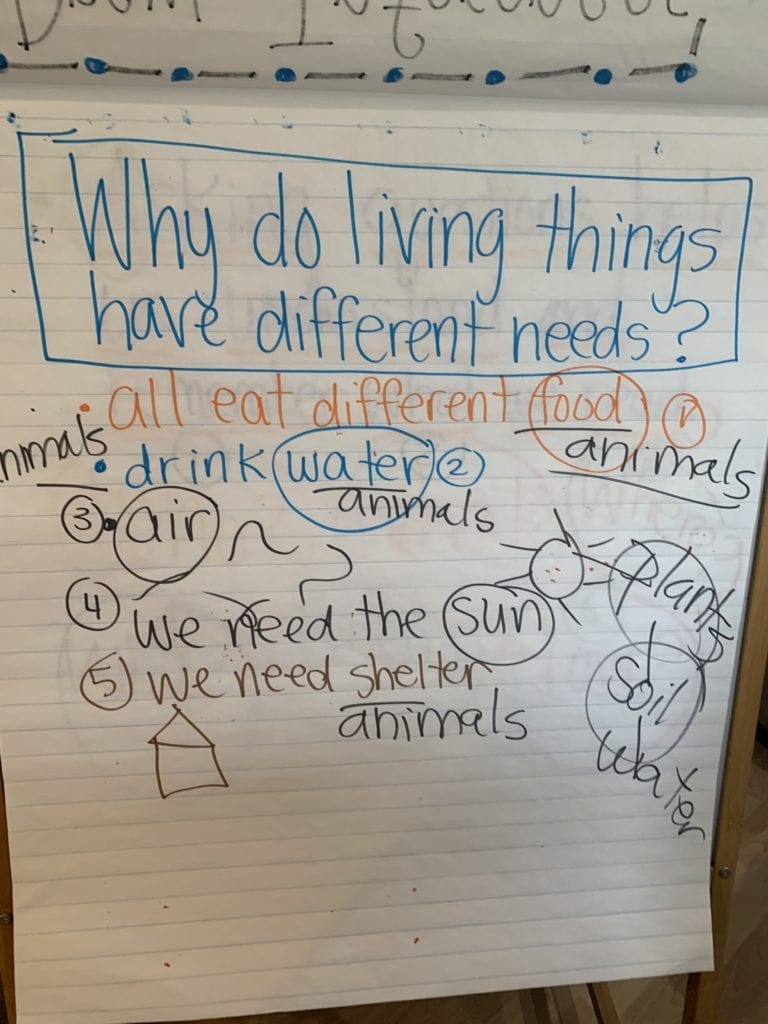 Why do living things
have different needs?
• all eat different food ①
animals
nimals • drink water ②
animals
③ • air
④ we need the sun
plants
⑤ we need shelter
soil
animals
water